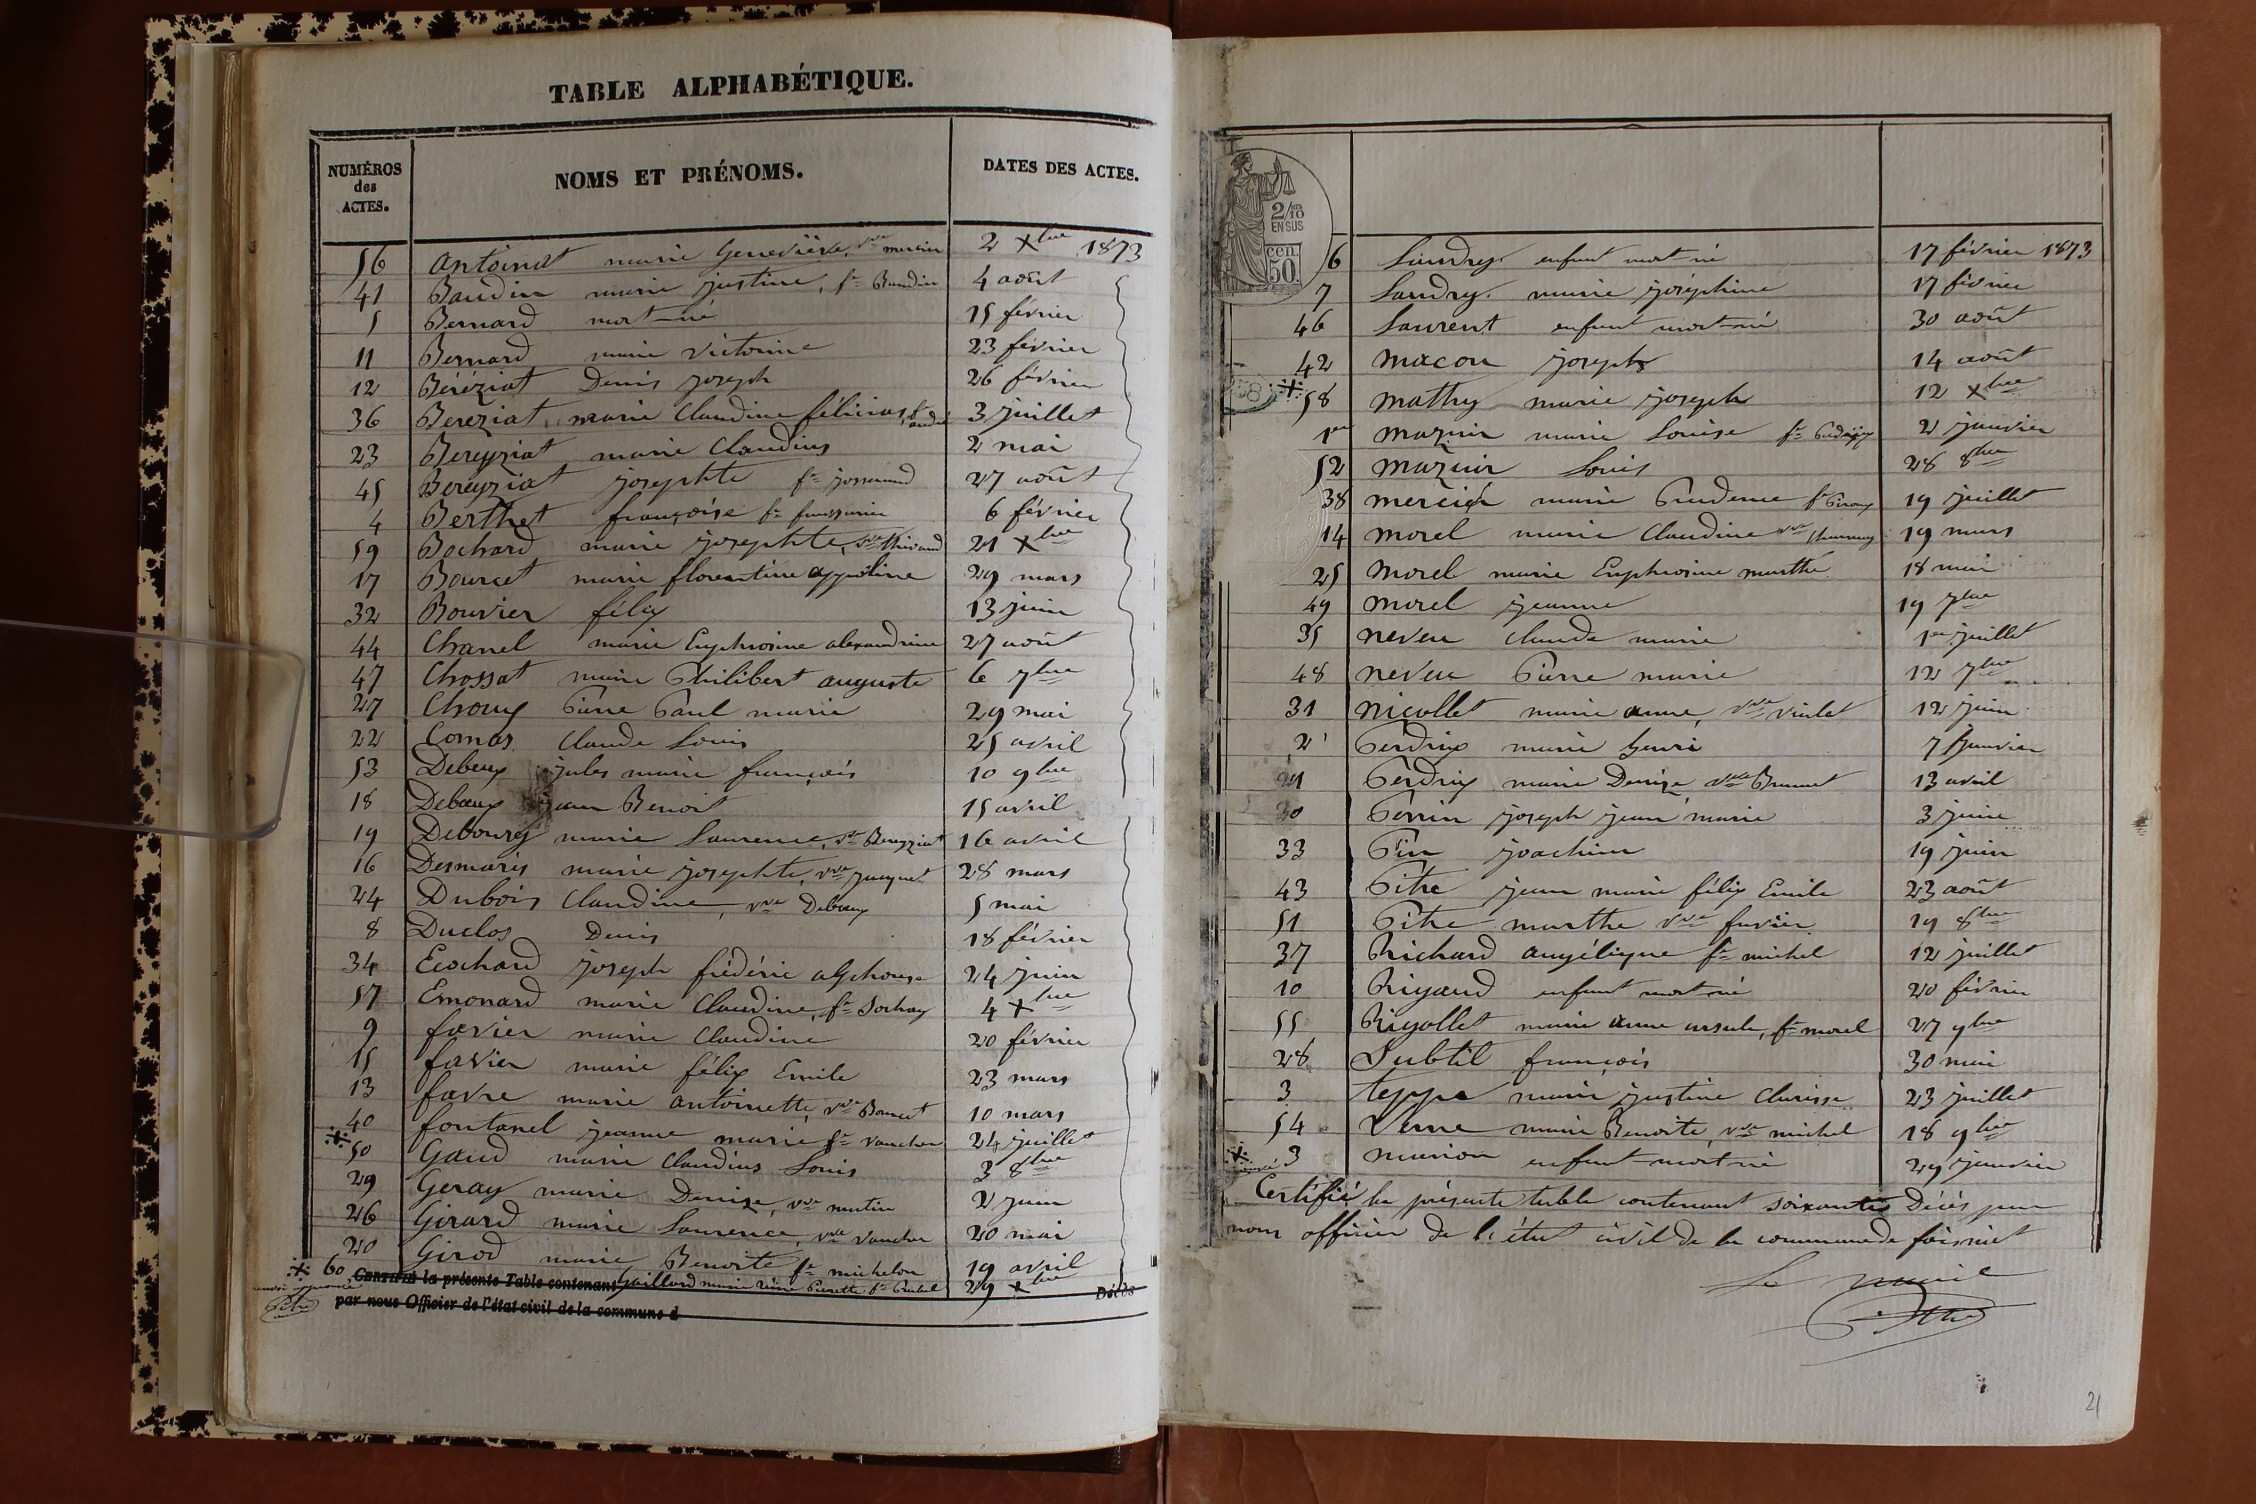 TABLE ALPHABÉTIQUE.
NUMÉROS des ACTES.
NOMS ET PRÉNOMS.
DATES DES ACTES.
56 Antoinat marie Geneviève, vve mercier 2 Xbre 1873
41 Baudin marie justine, fe Baudin 4 août
5 Bernard mort-né 15 février
11 Bernard marie victorine 23 février
12 Béréziat Denis joseph 26 février
36 Bereziat marie Claudine félicias, 3 juillet
23 Bereyziat marie Claudius 2 mai
45 Bereyziat josephte fe josserand 27 août
4 Berthet françoise fe 6 février
59 Bochard marie josephte, vve thivaud 21 Xbre
17 Bourcet marie florentine appoline 29 mars
32 Bouvier félix 13 juin
44 Chanel marie Euphrosine alexandrine 27 août
47 Chossat marie Philibert auguste 6 7bre
27 Chouy Pierre Paul marie 29 mai
22 Comas Claude Louis 25 avril
53 Debeuy jules marie françois 10 9bre
18 Debeuy jean Benoit 15 avril
19 Debourg marie Laurence, vve Bereyziat 16 avril
16 Desmaris marie josephte, vve jacquet 28 mars
24 Dubois Claudine, vve Debeuy 5 mai
8 Duclos Denis 18 février
34 Ecochard joseph frédéric alphonse 24 juin
57 Emonard marie Claudine, fe Sochay 4 Xbre
9 favier marie Claudine 20 février
15 favier marie félix Emile 23 mars
13 favre marie antoinette, vve Bourcet 10 mars
40 fontanel jeanne marie fe vaucher 24 juillet
50 Gaud marie Claudius Louis 3 8bre
29 Geray marie Denise, vve mutin 2 juin
26 Girard marie Laurence, vve vaucher 20 mai
20 Girod marie Benoite fe michelon 19 avril
60 Gaillard marie Reine Pierrette fe 29 Xbre
CERTIFIÉ la présente Table contenant Décès
par nous Officier de l'état civil de la commune d
2/10 EN SUS
50 cen.
6 Landry enfant mort né 17 février 1873
7 Landry marie joséphine 17 février
46 Laurent enfant mort-né 30 août
42 macon joseph 14 août
58 mathy marie joseph 12 Xbre
1er mazuir marie Louise fe 2 janvier
52 mazuir Louis 28 8bre
38 mercier marie Prudence fe 19 juillet
14 morel marie Claudine vve 19 mars
25 morel marie Euphrosine marthe 18 mai
49 morel jeanne 19 7bre
35 neveu claude marie 1er juillet
48 neveu Pierre marie 12 7bre
31 nicollet marie anne, vve violet 12 juin
2 Perdrix marie henri 7 janvier
21 Perdrix marie Denise vve Brunet 13 avril
30 Perrin joseph jean marie 3 juin
33 Pin joachim 19 juin
43 Pitre jean marie félix Emile 23 août
51 Pitre marthe vve favier 19 8bre
37 Richard angélique fe michel 12 juillet
10 Rigaud enfant mort né 20 février
55 Rigollet marie anne ursule, fe morel 27 9bre
28 Subtil françois 30 mai
3 teppe marie justine Clarisse 23 juillet
54 Verne marie Benoite, vve michel 18 9bre
3 marion enfant mort né 29 janvier
Certifié la présente table contenant soixante Décès par
nous officier de l'état civil de la commune de foissiat
Le maire
Pitre
21